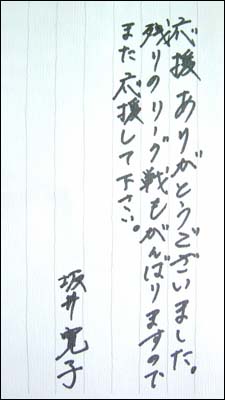 応援ありがとうございました。
残りのリーグ戦もがんばりますので
また応援して下さい。
坂井寛子